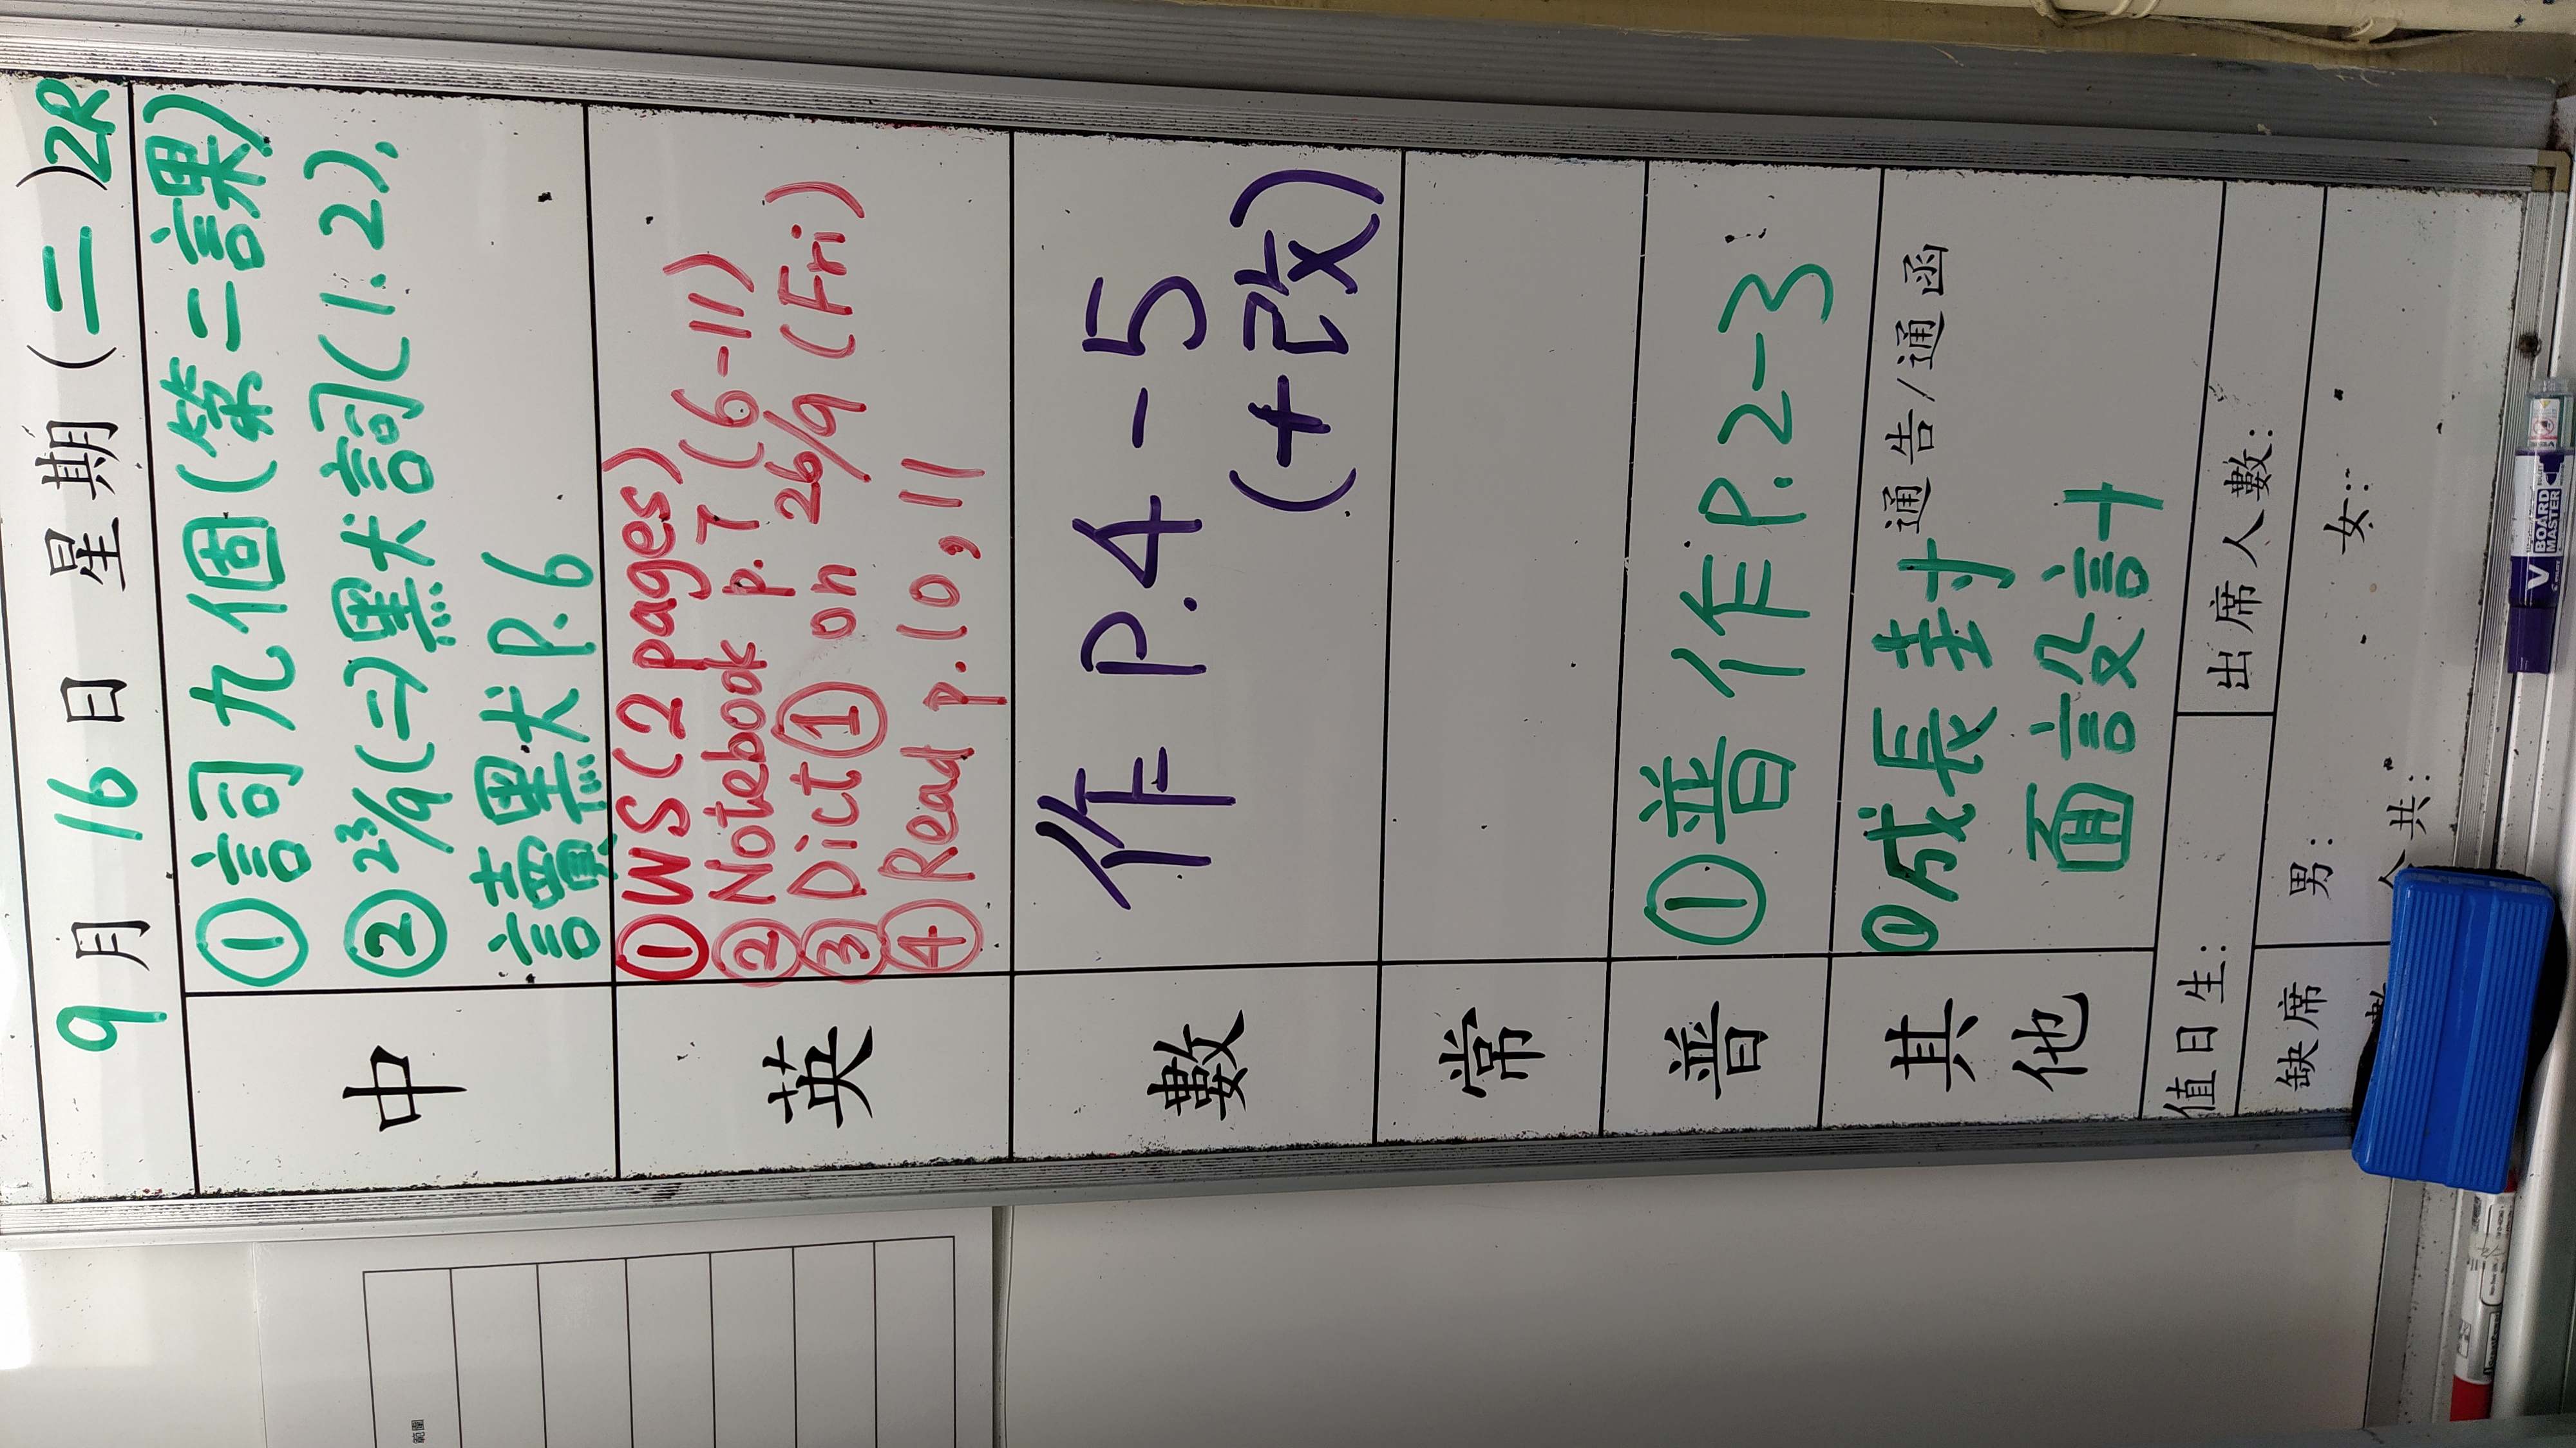 9 月 16 日 星 期 (二) 2R
中
①詞九個(第二課)
②23/9(二)黑犬詞(1.2),
讀黑犬P.6
英
①WS(2 pages)
②Notebook p.7 (6-11)
③Dict① on 26/9 (Fri)
④Read p.10,11
數
作 P.4-5
(+改)
常
普
①普作P.2-3
其他
①成長封 通告/通函
面設計
值日生:
出席人數:
缺席
男:
女:
人共:
BOARD MASTER
範圍